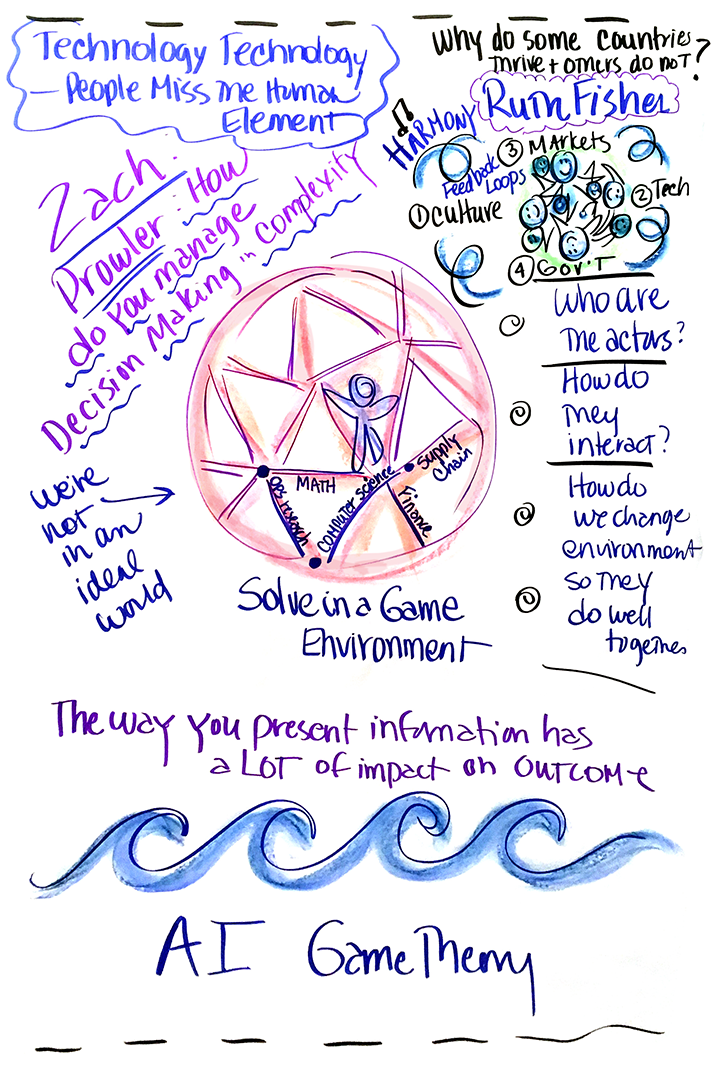 Technology Technology
— People Miss the Human
Element
Why do some countries
thrive + others do not?
Ruth Fisher
HARMONY
③ Markets
Feedback
Loops
② Tech
① culture
④ Gov't
Zach:
Prowler: How
do you manage
Decision Making in Complexity
who are
the actors?
How do
they
interact?
How do
we change
environment
so they
do well
together
we're
not
in an
ideal
world
MATH
Ops research
computer science
Supply
Chain
Finance
Solve in a Game
Environment
The way you present information has
a LOT of impact on OUTCOME
AI Game Theory